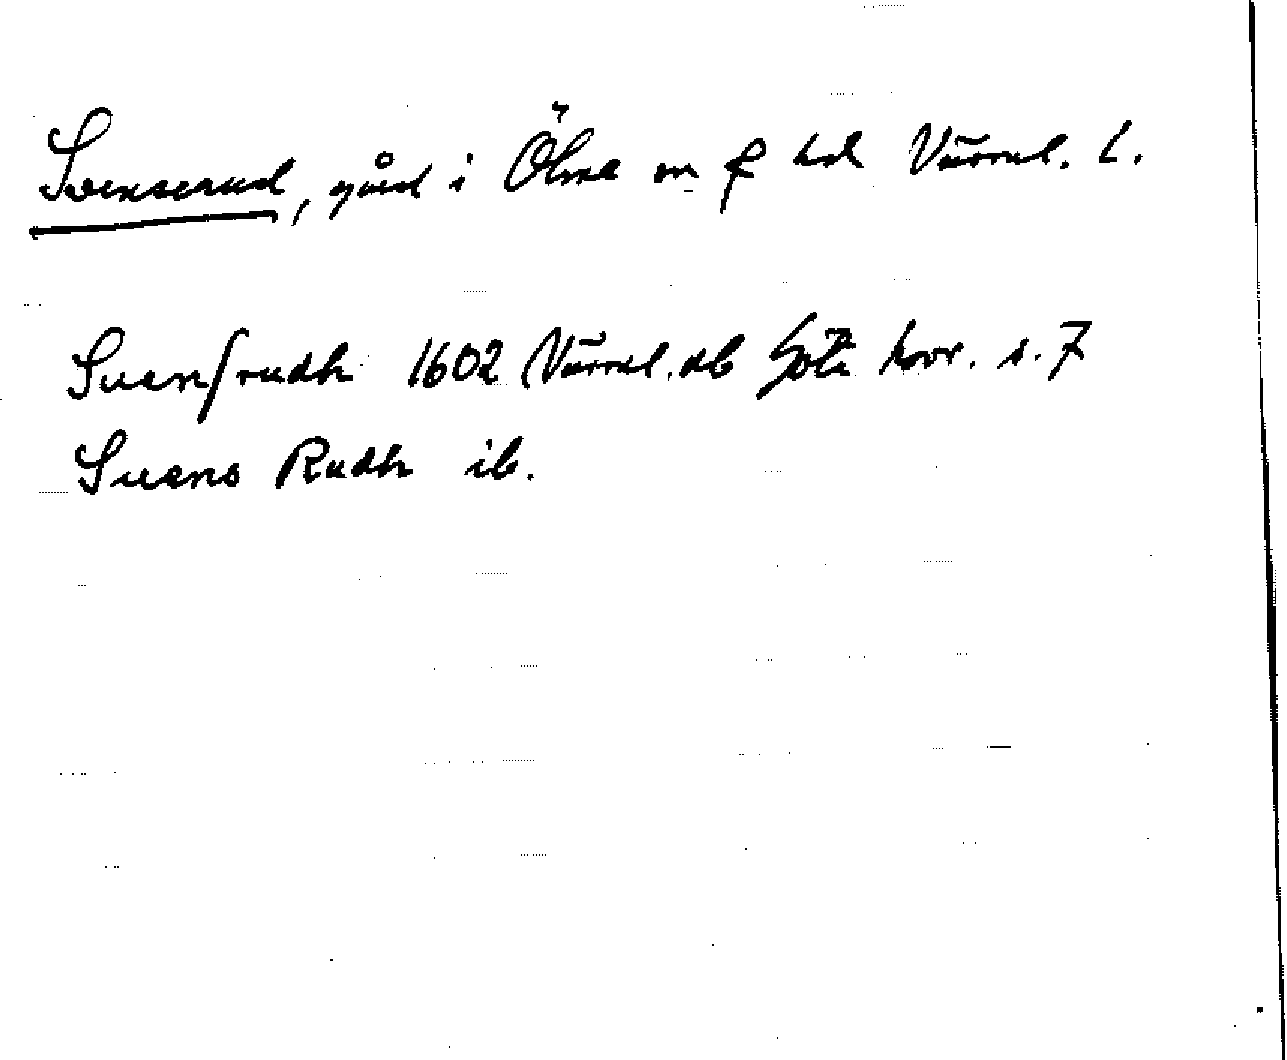 Svenserud, gård i Ölme sn o hd Värml. l.
Suensrudh 1602 Värml. ab Göta hovr. s. 7
Suens Rudh ib.